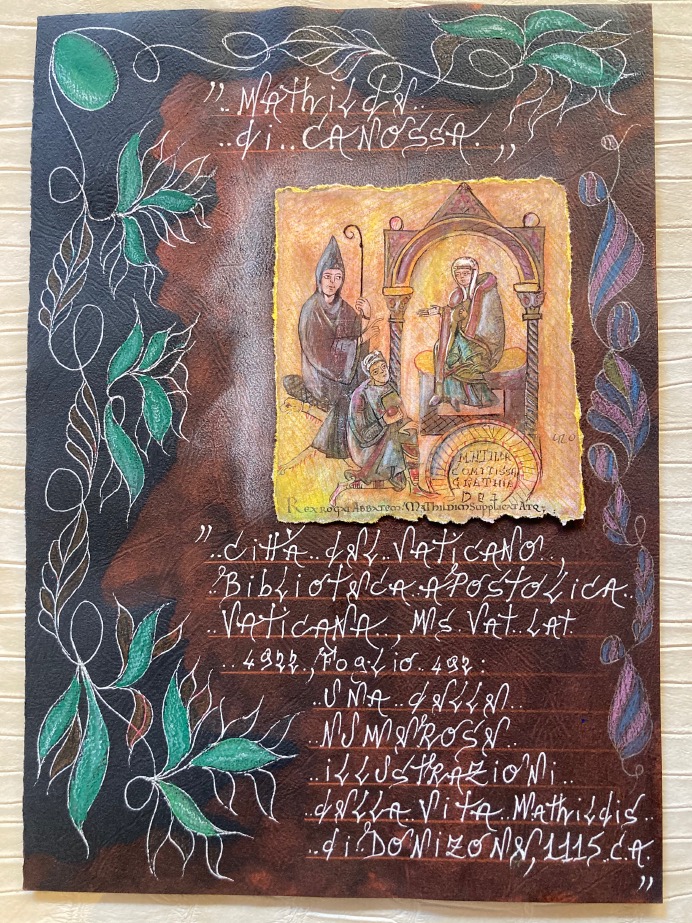 ”..Mathilde..
..di..CANOSSA.„
420
MATHIL
COMITISSA
GRATHIA
DEI
Rex rogat Abbatem Mathildim Supplicat Atq;
”..città..del..VATICANO..,
Biblioteca..APOStOlicA..
VATICANA.., Ms..Vat..LAt
..4922.., Foglio..492:
..UNA..delle..
..NUMEROSE..
..illUStRAZioNi..
..dellA..VitA..Mathildis..
..di..DONiZONE, 1115..CA.
”